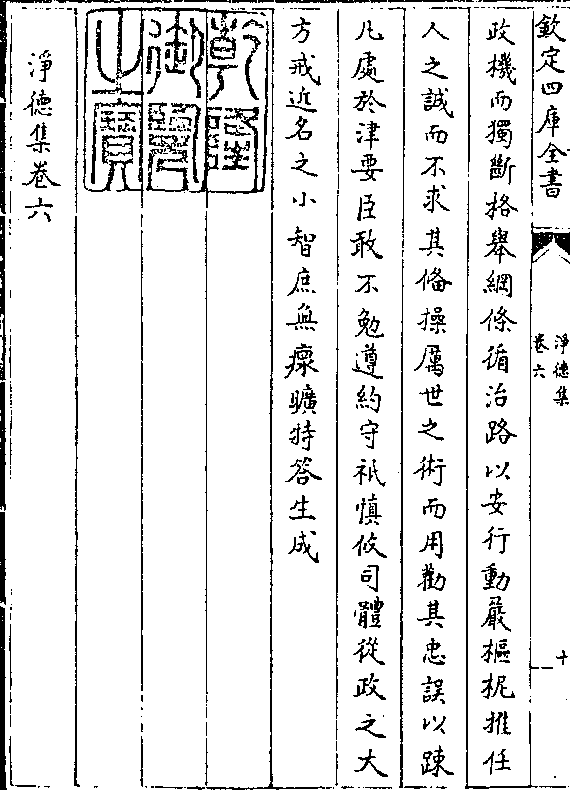 欽定四庫全書
淨德集
卷六
十一
政機而獨斷格舉綱條循治路以安行動嚴樞柅推任
人之誠而不求其偹操厲世之術而用勸其忠誤以踈
凡處於津要臣敢不勉遵約守祇慎攸司體從政之大
方戒近名之小智庶無瘝曠特答生成
乾隆御覽之寶
淨德集卷六